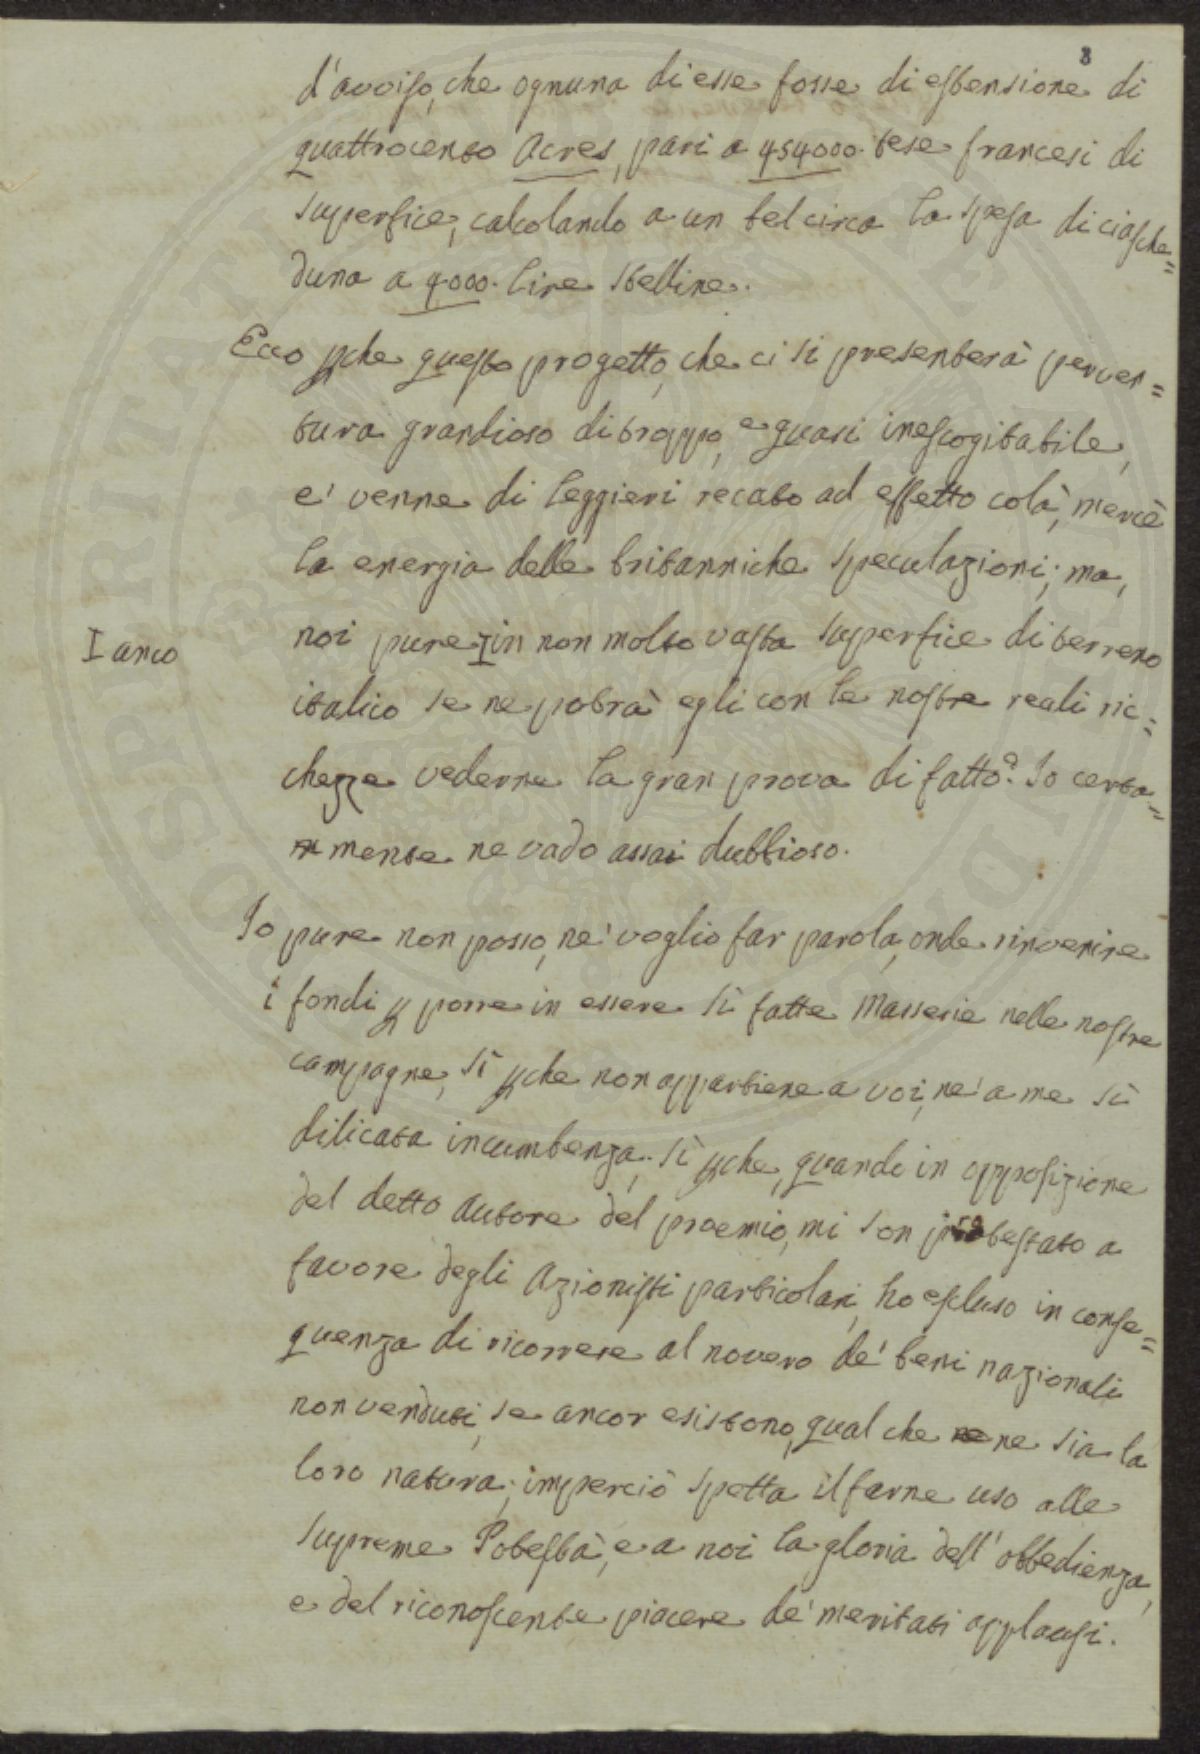 8
d'avviso, che ognuna di esse fosse di estensione di
quattrocento Acres, pari a 454000. tese francesi di
superfice, calcolando a un bel circa la spesa di ciasche=
duna a 4000. lire sterline.
Ecco pche questo progetto, che ci si presenterà perven=
tura grandioso di troppo, e quasi inescogitabile,
e' venne di leggieri recato ad effetto colà, mercè
la energia delle britanniche speculazioni; ma,
noi pure I in non molto vasta superfice di terreno
I anco
italico se ne potrà egli con le nostre reali ric=
chezze vederne la gran prova di fatto? Io certa=
mente ne vado assai dubbioso.
Io pure non posso, ne' voglio far parola, onde rinvenire
i fondi p porre in essere sì fatte Masserie nelle nostre
campagne, sì pche non appartiene a voi, ne' a me sì
dilicata incumbenza, sì pche, quando in opposizione
del detto Autore del proemio, mi son protestato a
favore degli Azionisti particolari, ho escluso in conse=
quenza di ricorrere al novero de' beni nazionali
non venduti, se ancor esistono, qual che ne sia la
loro natura; imperciò spetta il farne uso alle
supreme Potestà, e a noi la gloria dell'obbedienza,
e del riconoscente piacere de' meritati applausi.